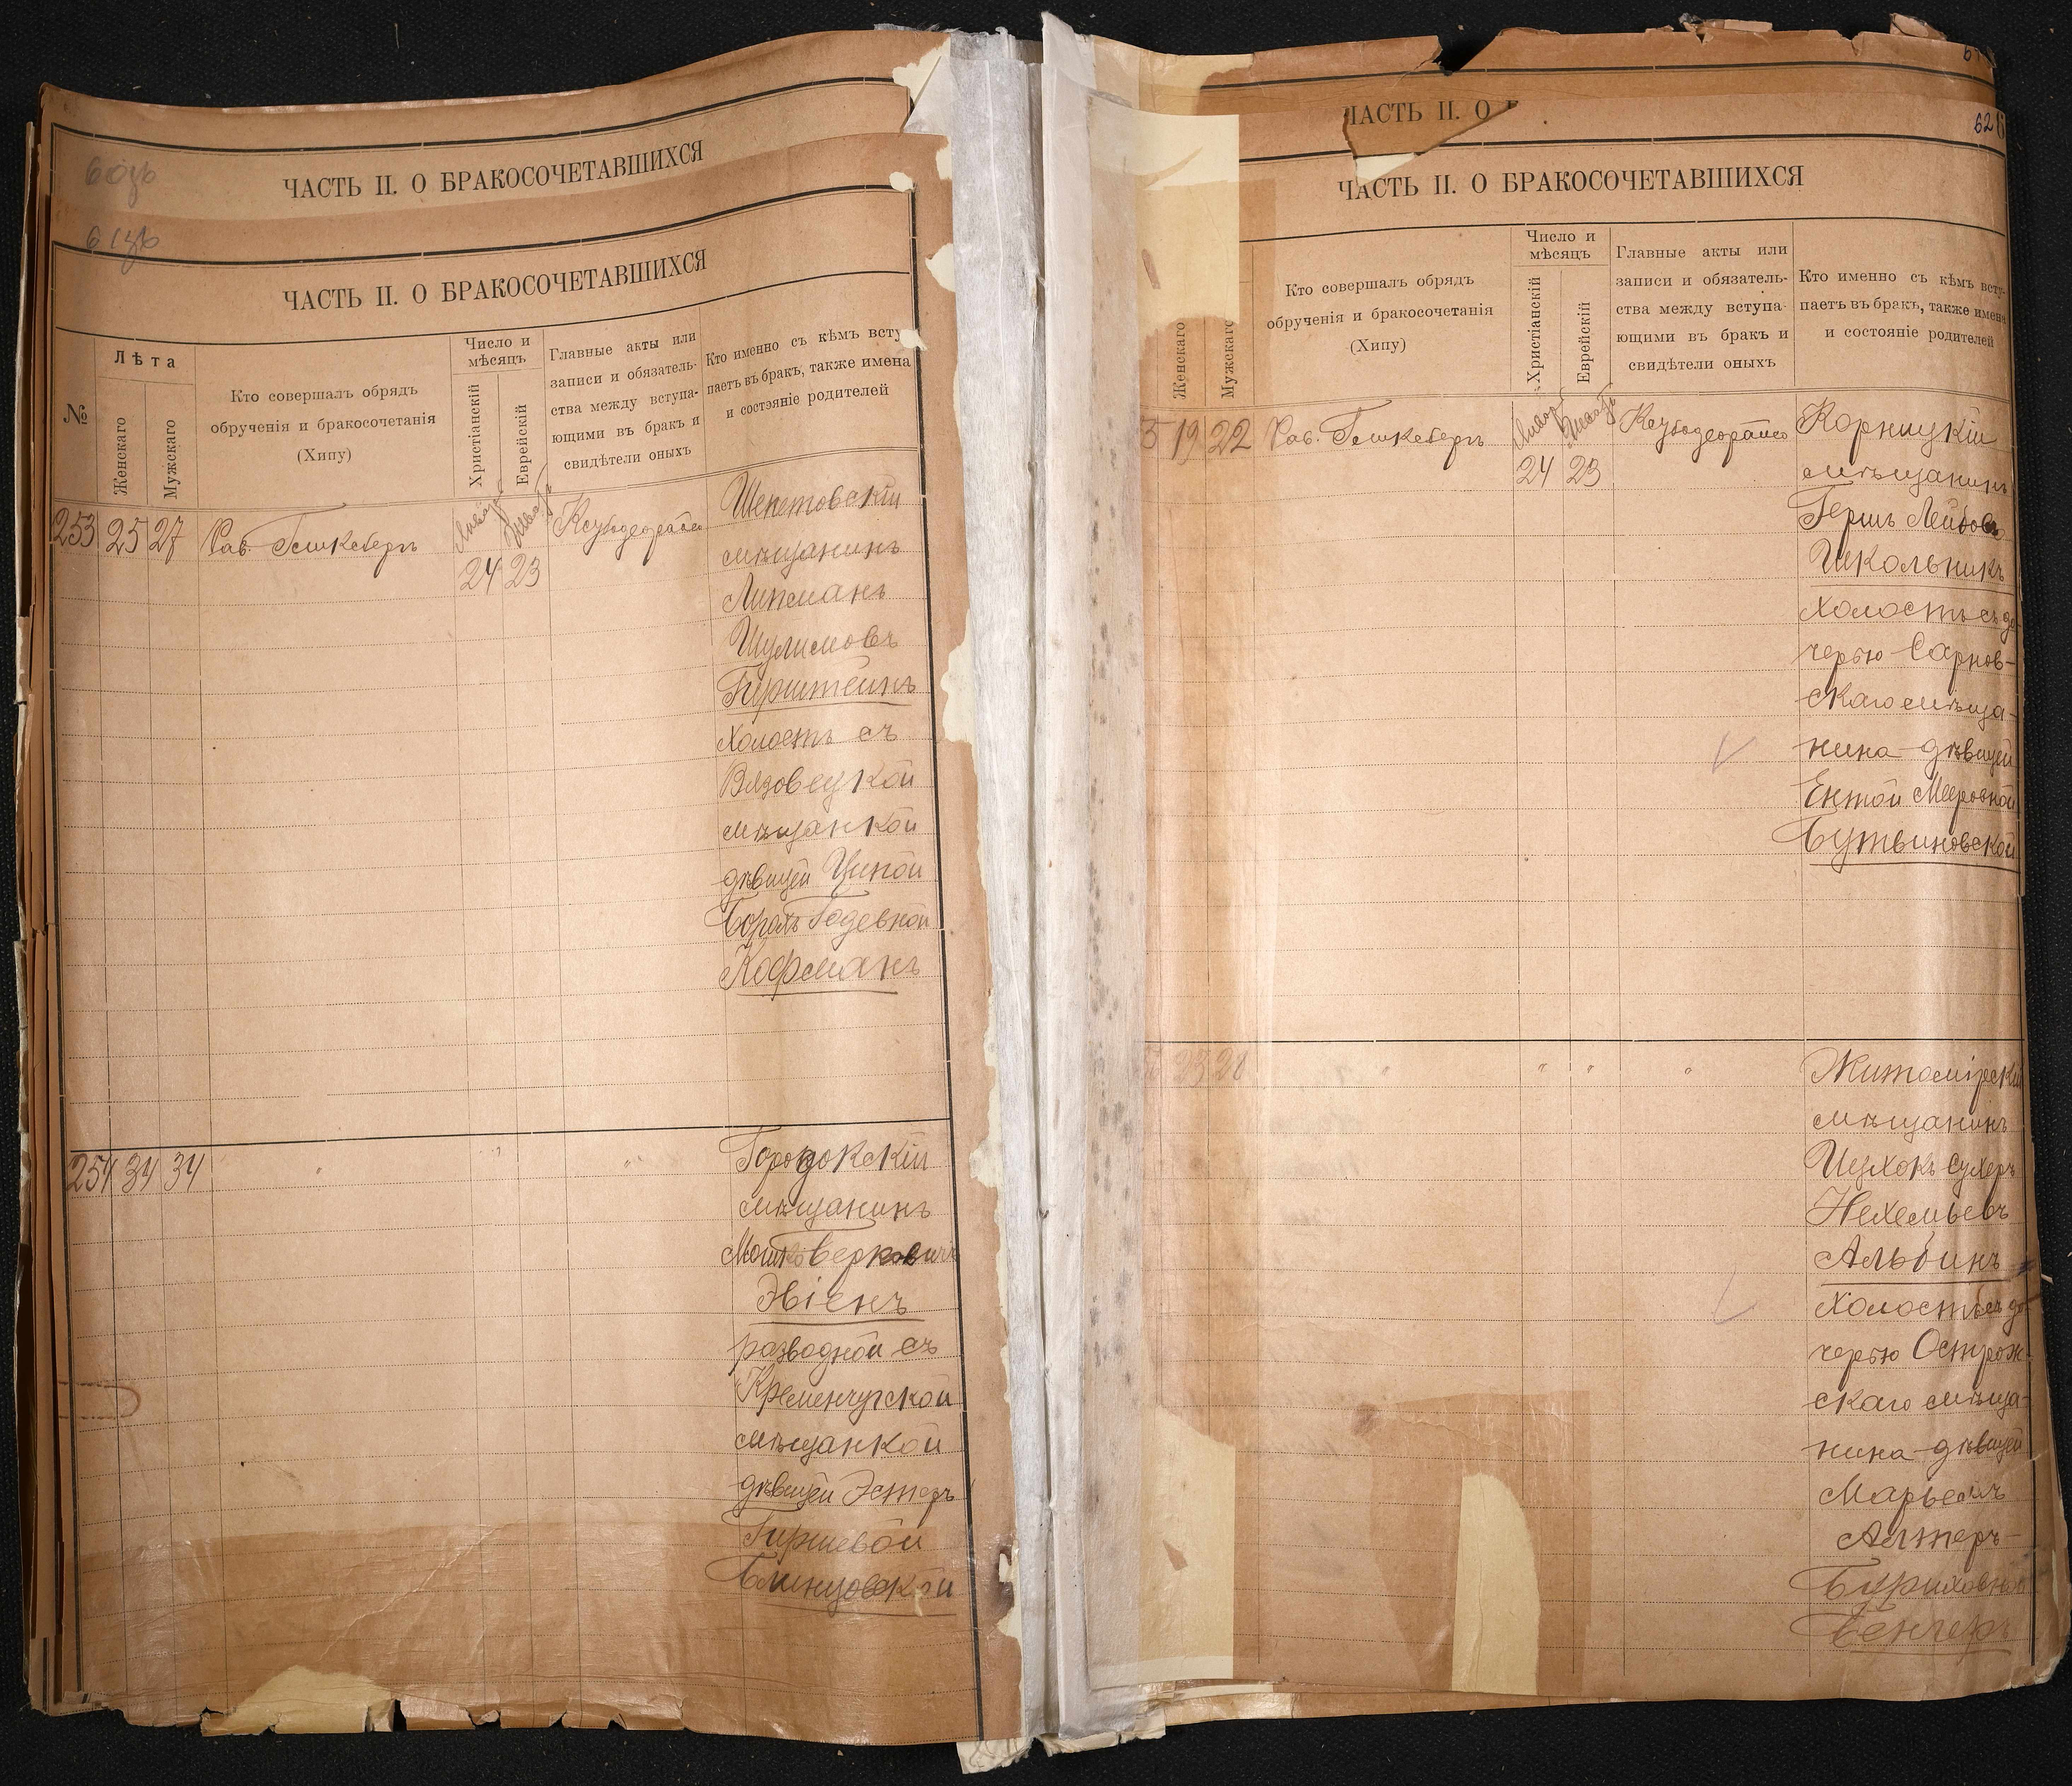 60зв
ЧАСТЬ II. О БРАКОСОЧЕТАВШИХСЯ
61зв
ЧАСТЬ II. О БРАКОСОЧЕТАВШИХСЯ
№
Лѣта
Женскаго
Мужскаго
Кто совершалъ обрядъ
обрученія и бракосочетанія
(Хипу)
Число и
мѣсяцъ
Христіанскій
Еврейскій
Главные акты или
записи и обязатель-
ства между вступа-
ющими въ бракъ и
свидѣтели оныхъ
Кто именно съ кѣмъ всту
паетъ въ бракъ, также имена
и состэяніе родителей
253 25 27 Рав.
24 23
Шепетовскій
мѣщанинъ
Липманъ
Шулимовъ
Гирштейнъ
холостъ съ
Вязовецкой
мѣщанкой
дѣвицей Ципой
Годевной
Кофманъ
254 34 34 " " "
Городокскій
мѣщанинъ
Мошко Берковичъ
Эвіенъ
разводной съ
Кременчугской
мѣщанкой
дѣвицей Эстеръ
Гиршевой
Блинцовской
ЧАСТЬ II. О
62
ЧАСТЬ II. О БРАКОСОЧЕТАВШИХСЯ
Женскаго
Мужскаго
Кто совершалъ обрядъ
обрученія и бракосочетанія
(Хипу)
Число и
мѣсяцъ
Христіанскій
Еврейскій
Главные акты или
записи и обязатель-
ства между вступа-
ющими въ бракъ и
свидѣтели оныхъ
Кто именно съ кѣмъ всту-
паетъ въ бракъ, также имена
и состояніе родителей
5 19 22 Рав.
24 23
Корницкій
мѣщанинъ
Гершъ Лейбовъ
Школьникъ
холостъ съ до
черью Сарнов-
скаго мѣща-
нина дѣвицей
Ентой Мееровной
Бутвиновской
23 28 " " " "
Житомірскій
мѣщанинъ
Шухокъ Сухеръ
Нехемьевъ
Альбинъ
холостъ съ до-
черью Острож
скаго мѣща-
нина дѣвицей
Марьемъ
Алтеръ-
Бенчеръ